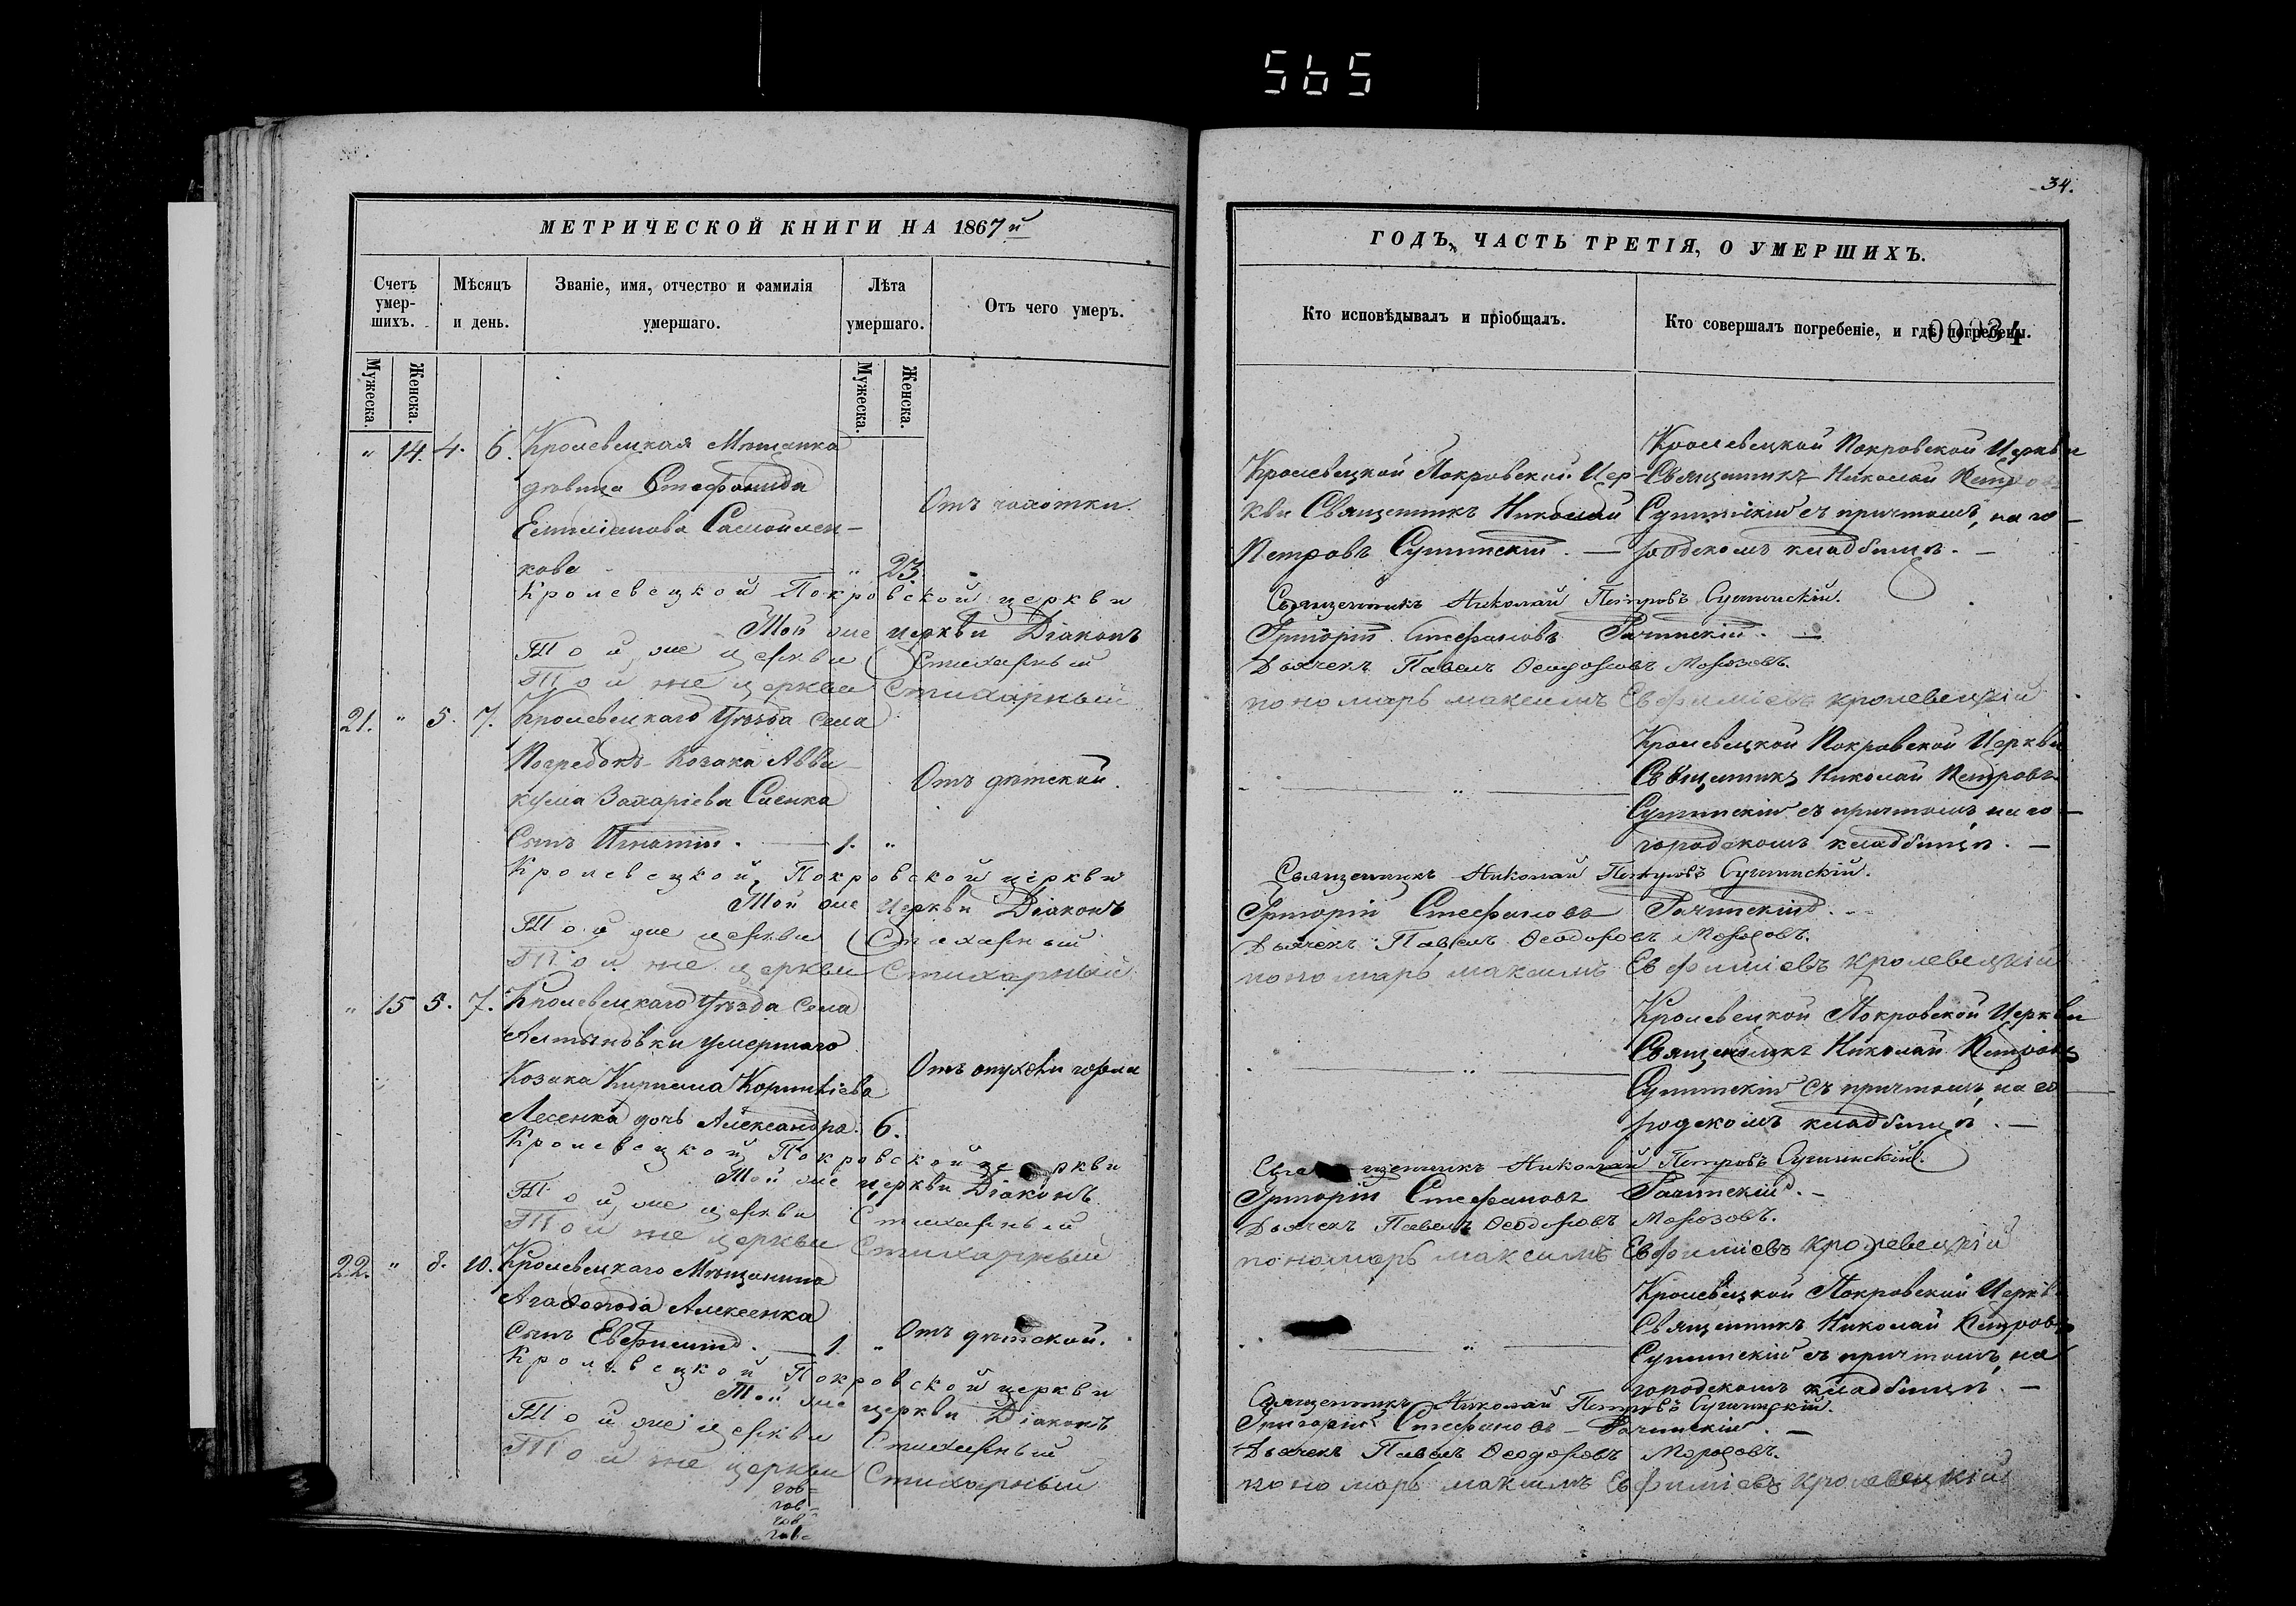 565
МЕТРИЧЕСКОЙ КНИГИ НА 1867й
Счетъ умер-шихъ.
Мѣсяцъ и день.
Званіе, имя, отчество и фамилія умершаго.
Лѣта умершаго.
Отъ чего умеръ.
Мужеска.
Женска.
Мужеска.
Женска.
" 14. 4. 6. Кролевецкая Мѣщанка
дѣвица Стефанида
Емиліанова Самойлен-
Отъ чахотки.
кова " 23.
Кролевецкой Покровской церкви
Той же церкви Діаконъ
Той же церкви Стихарный
Той же церкви Стихарный
21. " 5. 7. Кролевецкаго Уѣзда села
Погребокъ Козака Авва-
кума Захаріева Сиенка
Отъ дѣтской.
Сынъ Игнатій. 1. "
Кролевецкой Покровской церкви
Той же Церкви Діаконъ
Той же церкви Стихарный
Той же церкви Стихарный
" 15 5. 7. Кролевецкаго Уѣзда села
Алтыновки умершаго
Козака Кирилла Корнилѣва
Отъ опухоли горла
Лесенка дочь Александра. 6.
Кролевецкой Покровской церкви
Той же церкви Діаконъ
Той же церкви Стихарный
Той же церкви Стихарный
22. " 8. 10. Кролевецкаго Мѣщанина
Агафопода Алексенка
Сынъ Евфимій. 1. " Отъ дѣтской.
Кролевецкой Покровской церкви
Той же церкви Діаконъ
Той же церкви Стихарный
Той же церкви Стихарный
34.
ГОДЪ, ЧАСТЬ ТРЕТІЯ, О УМЕРШИХЪ.
Кто исповѣдывалъ и пріобщалъ.
Кто совершалъ погребеніе, и гдѣ погребены.
00034
Кролевецкой Покровской Цер-
кви Священникъ Николай
Петровъ Сушинскій.
Кролевецкой Покровской Церкви
Священникъ Николай Петровъ
Сушинскій съ причтомъ, на го-
родскомъ кладбищѣ.
Священникъ Николай Петровъ Сушинскій.
Григорій Стефановъ Рачинскій.
Дьячекъ Павелъ Ѳеодоровъ Морозовъ.
пономарь максимъ Евфиміевъ кролевецкій
Кролевецкой Покровской Церкви
Священникъ Николай Петровъ
Сушинскій съ причтомъ, на го-
городскомъ кладбищѣ.
Священникъ Николай Петровъ Сушинскій.
Григорій Стефановъ Рачинскій.
Дьячекъ Павелъ Ѳеодоровъ Морозовъ.
пономарь максимъ Евфиміевъ кролевецкій
Кролевецкой Покровской Церкви
Священникъ Николай Петровъ
Сушинскій съ причтомъ, на го
родскомъ кладбищѣ.
Священникъ Николай Петровъ Сушинскій.
Григорій Стефановъ Рачинскій.
Дьячекъ Павелъ Ѳеодоровъ Морозовъ.
пономарь максимъ Евфиміевъ кролевецкій
Кролевецкой Покровской Церкви
Священникъ Николай Петровъ
Сушинскій съ причтомъ, на
городскомъ кладбищѣ.
Священникъ Николай Петровъ Сушинскій.
Григорій Стефановъ Рачинскій.
Дьячекъ Павелъ Ѳеодоровъ Морозовъ.
пономарь максимъ Евфиміевъ кролевецкій